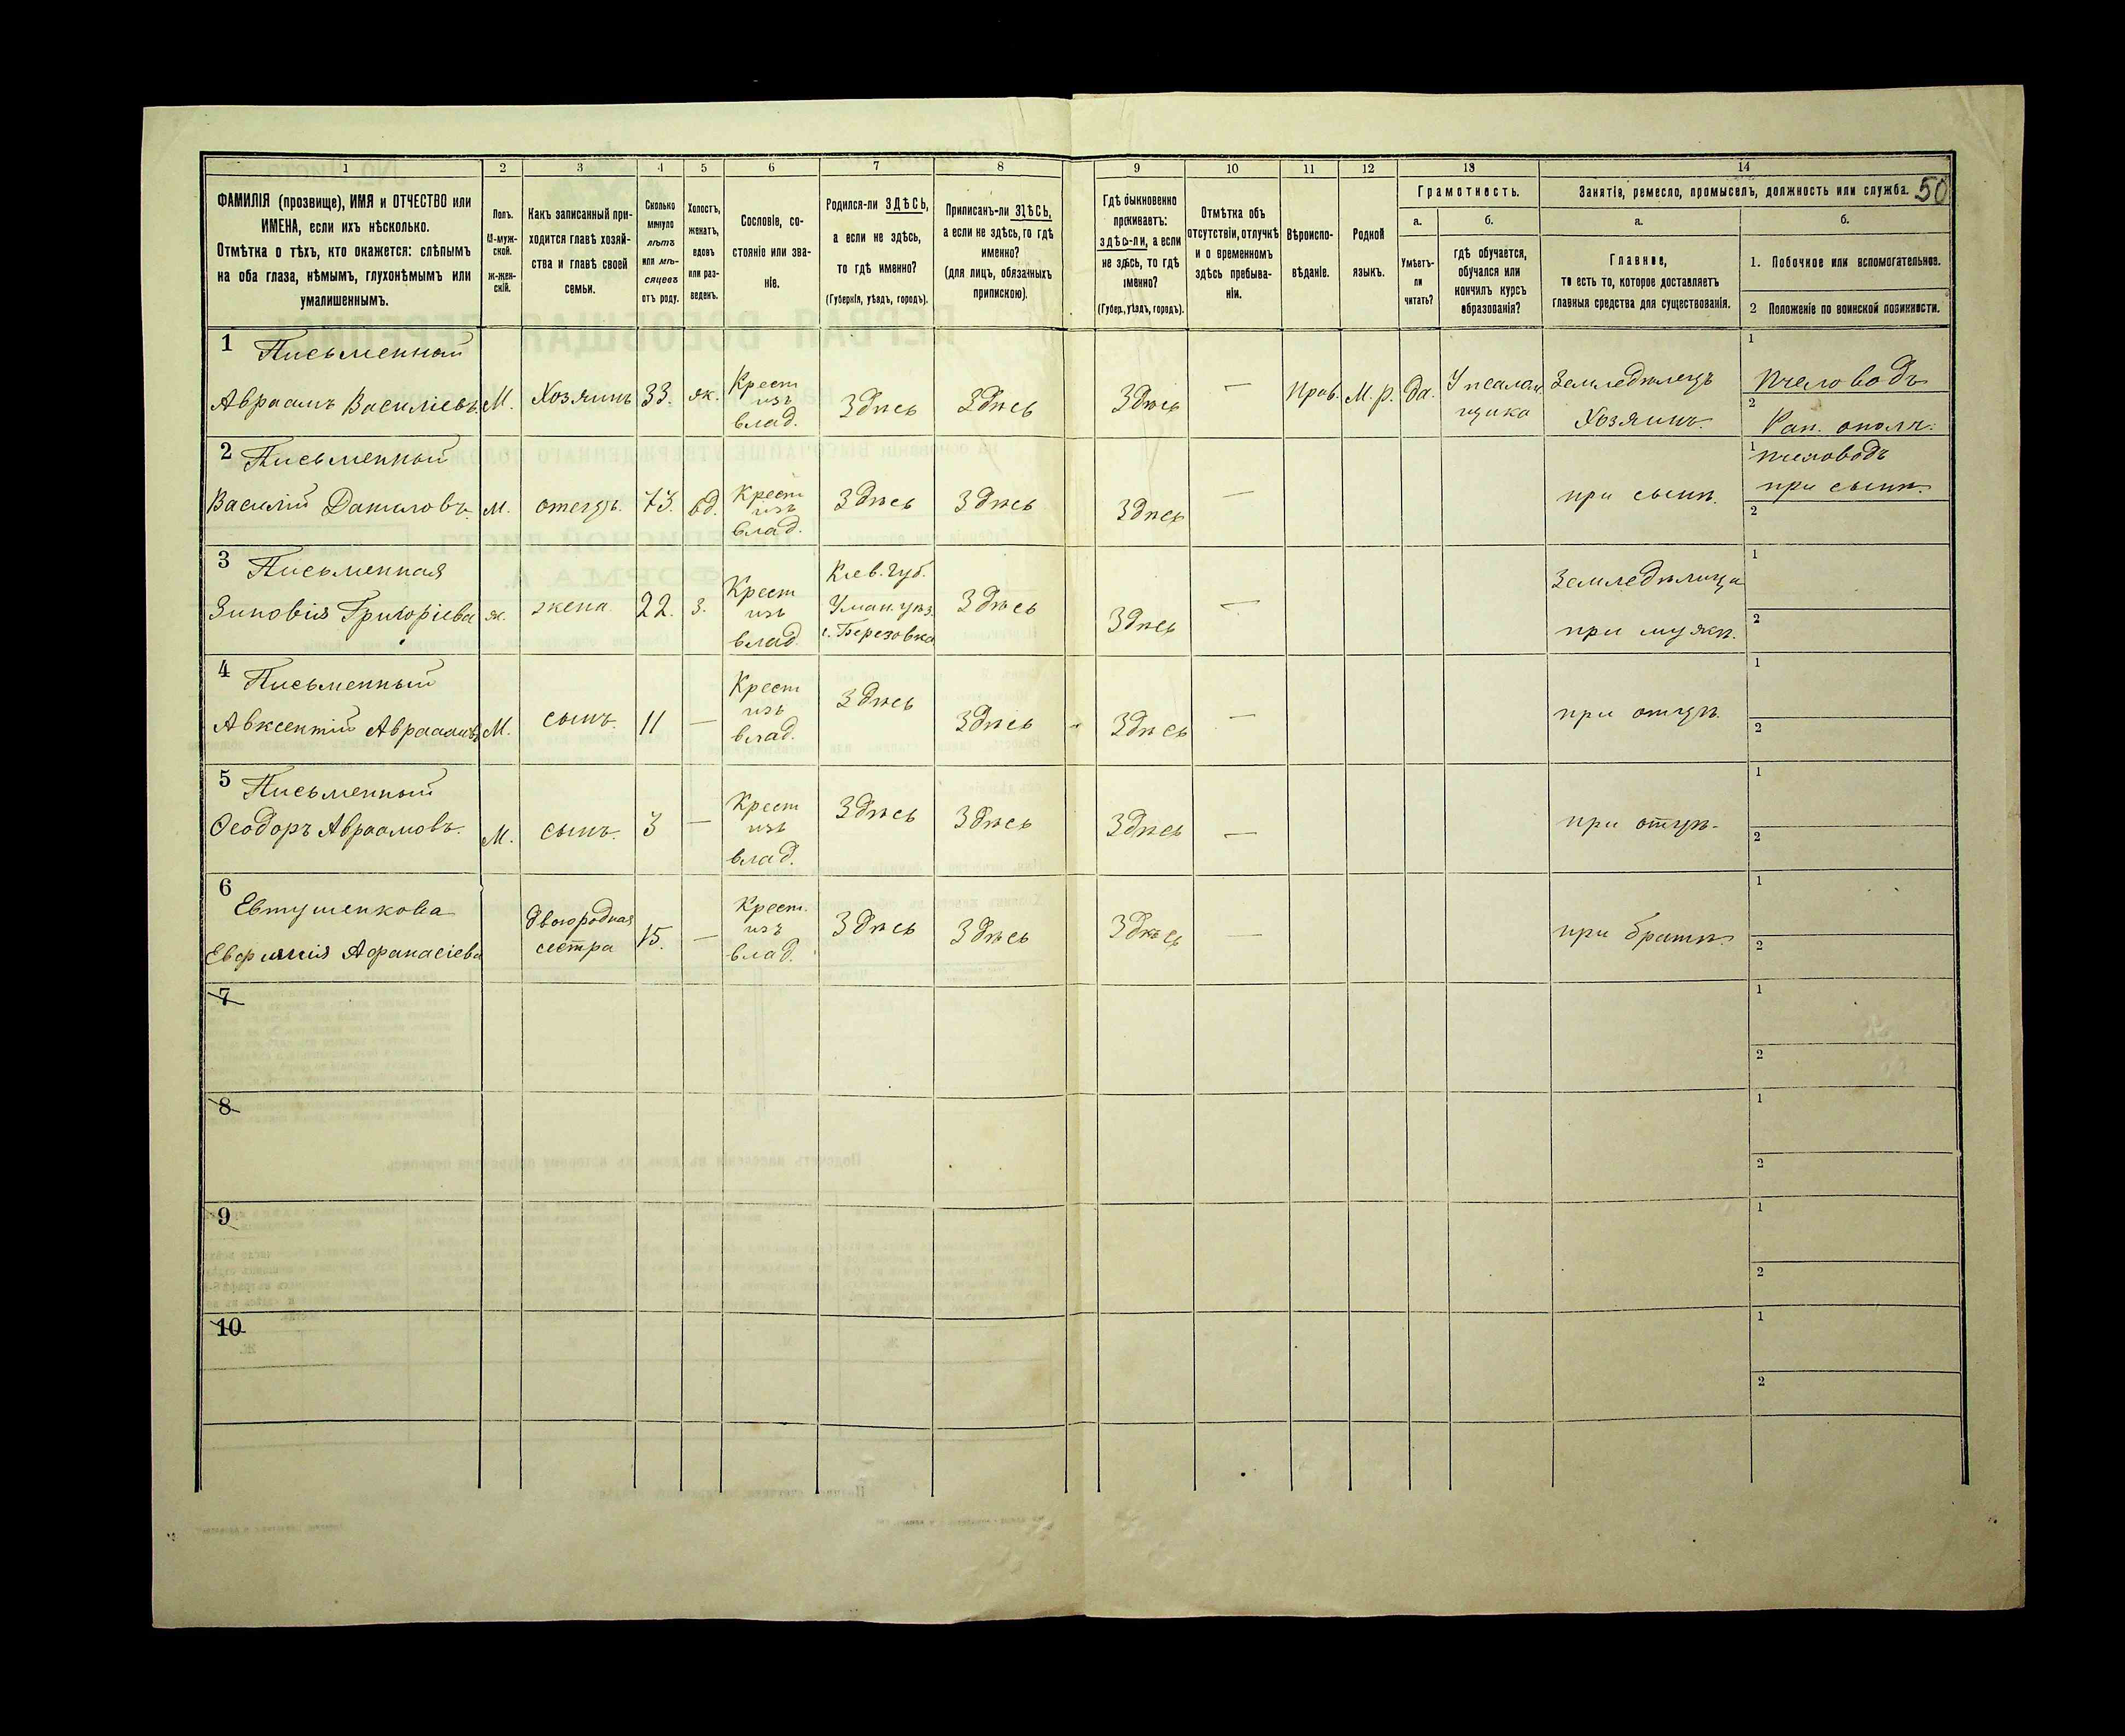 50
1 2 3 4 5 6 7 8 9 10 11 12 13 14
ФАМИЛІЯ (прозвище), ИМЯ и ОТЧЕСТВО или
ИМЕНА, если ихъ нѣсколько.
Отмѣтка о тѣхъ, кто окажется: слѣпымъ
на оба глаза, нѣмымъ, глухонѣмымъ или
умалишеннымъ.
Полъ.
М-муж-
ской.
ж-жен-
скій.
Какъ записанный при-
ходится главѣ хозяй-
ства и главѣ своей
семьи.
Сколько
минуло
лѣтъ
или мѣ-
сяцевъ
отъ роду.
Холостъ,
женатъ,
вдовъ
или раз-
веденъ.
Сословіе, со-
стояніе или зва-
ніе.
Родился-ли ЗДѢСЬ,
а если не здѣсь,
то гдѣ именно?
(Губернія, уѣздъ, городъ).
Приписанъ-ли ЗДѢСЬ,
а если не здѣсь, то гдѣ
именно?
(для лицъ, обязанныхъ
припискою).
Гдѣ обыкновенно
проживаетъ:
здѣсь-ли, а если
не здѣсь, то гдѣ
именно?
(Губер., уѣздъ, городъ).
Отмѣтка объ
отсутствіи, отлучкѣ
и о временномъ
здѣсь пребыва-
ніи.
Вѣроиспо-
вѣданіе.
Родной
языкъ.
Грамотность.
а.
Умѣетъ-
ли
читать?
б.
гдѣ обучается,
обучался или
кончилъ курсъ
образованія?
Занятіе, ремесло, промыселъ, должность или служба.
а.
Главное,
то есть то, которое доставляетъ
главныя средства для существованія.
б.
1. Побочное или вспомогательное.
2 Положеніе по воинской повинности.
1 Письменный
Авраамъ Василіевъ
М.
Хозяинъ
33.
ж.
Крест
изъ
влад.
Здѣсь
Здѣсь
Здѣсь
—
Прав.
М. р.
да.
У псалом
щика
Земледѣлецъ
Хозяинъ.
1
Пчеловодъ
2
Рат. ополч.
2 Письменный
Василій Даниловъ
м.
отецъ.
73.
вд.
Крест
изъ
влад.
Здѣсь
Здѣсь
Здѣсь
—
при сынѣ.
1 пчеловодъ
при сынѣ.
2
3 Письменная
Зиновія Григоріева
ж.
жена
22.
з.
Крест
изъ
влад
Кіев. губ.
Уман. уѣз.
с. Березовка
Здѣсь
Здѣсь
—
Земледѣлица
при мужѣ.
1
2
4 Письменный
Авксентій Авраамовъ
М.
сынъ
11
—
Крест
изъ
влад.
Здѣсь
Здѣсь
Здѣсь
—
при отцѣ.
1
2
5 Письменный
Ѳеодоръ Авраамовъ.
М.
сынъ.
3
—
Крест
изъ
влад.
Здѣсь
Здѣсь
Здѣсь
—
при отцѣ.
1
2
6
Евтушенкова
Евфимія Афанасіева
двоюродная
сестра
15.
—
Крест.
изъ
влад.
Здѣсь
Здѣсь
Здѣсь
—
при братѣ
1
2
7
1
2
8
1
2
9
1
2
10
1
2